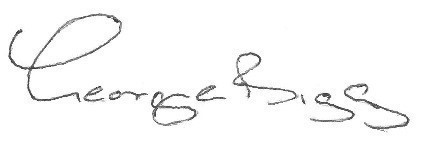 George Bigg